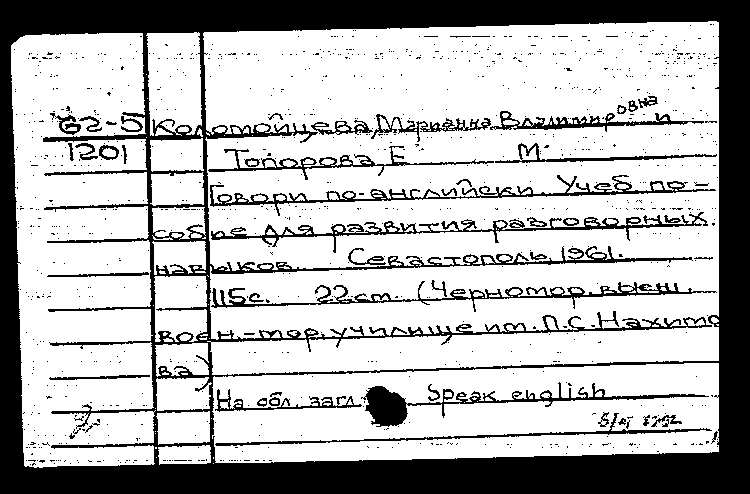 62-5 Колотойцева, Марианна Владимировна и
1201 Топорова, Е М.
Говори по-английски. Учеб. по=
собие для развития разговорных
навыков. Севастополь, 1961.
115с. 22cm. (Черномор. высш.
воен.-мор. училище им. П.С. Нахимо
ва)
На обл. загл. Speak english
2